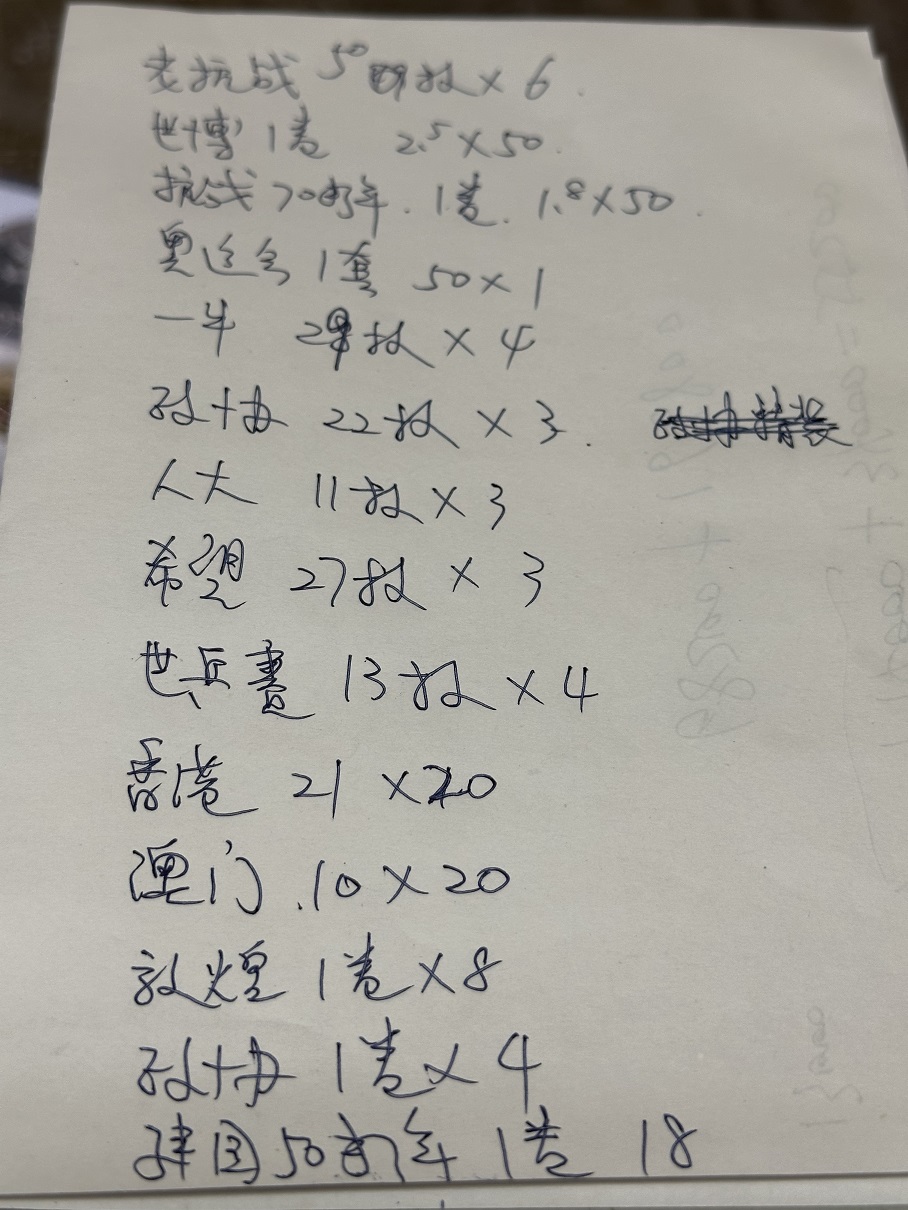 老抗战 50枚×6.
世博 1卷 2.5×50.
抗战70周年. 1卷. 1.8×50.
奥运会 1套 50×1
一牛 2枚×4
政协 22枚×3.
人大 11枚×3
希望 27枚×3
世兵 13枚×4
香港 21×20
澳门 .10×20
敦煌 1卷×8
政协 1卷×4
建国50周年 1卷 18